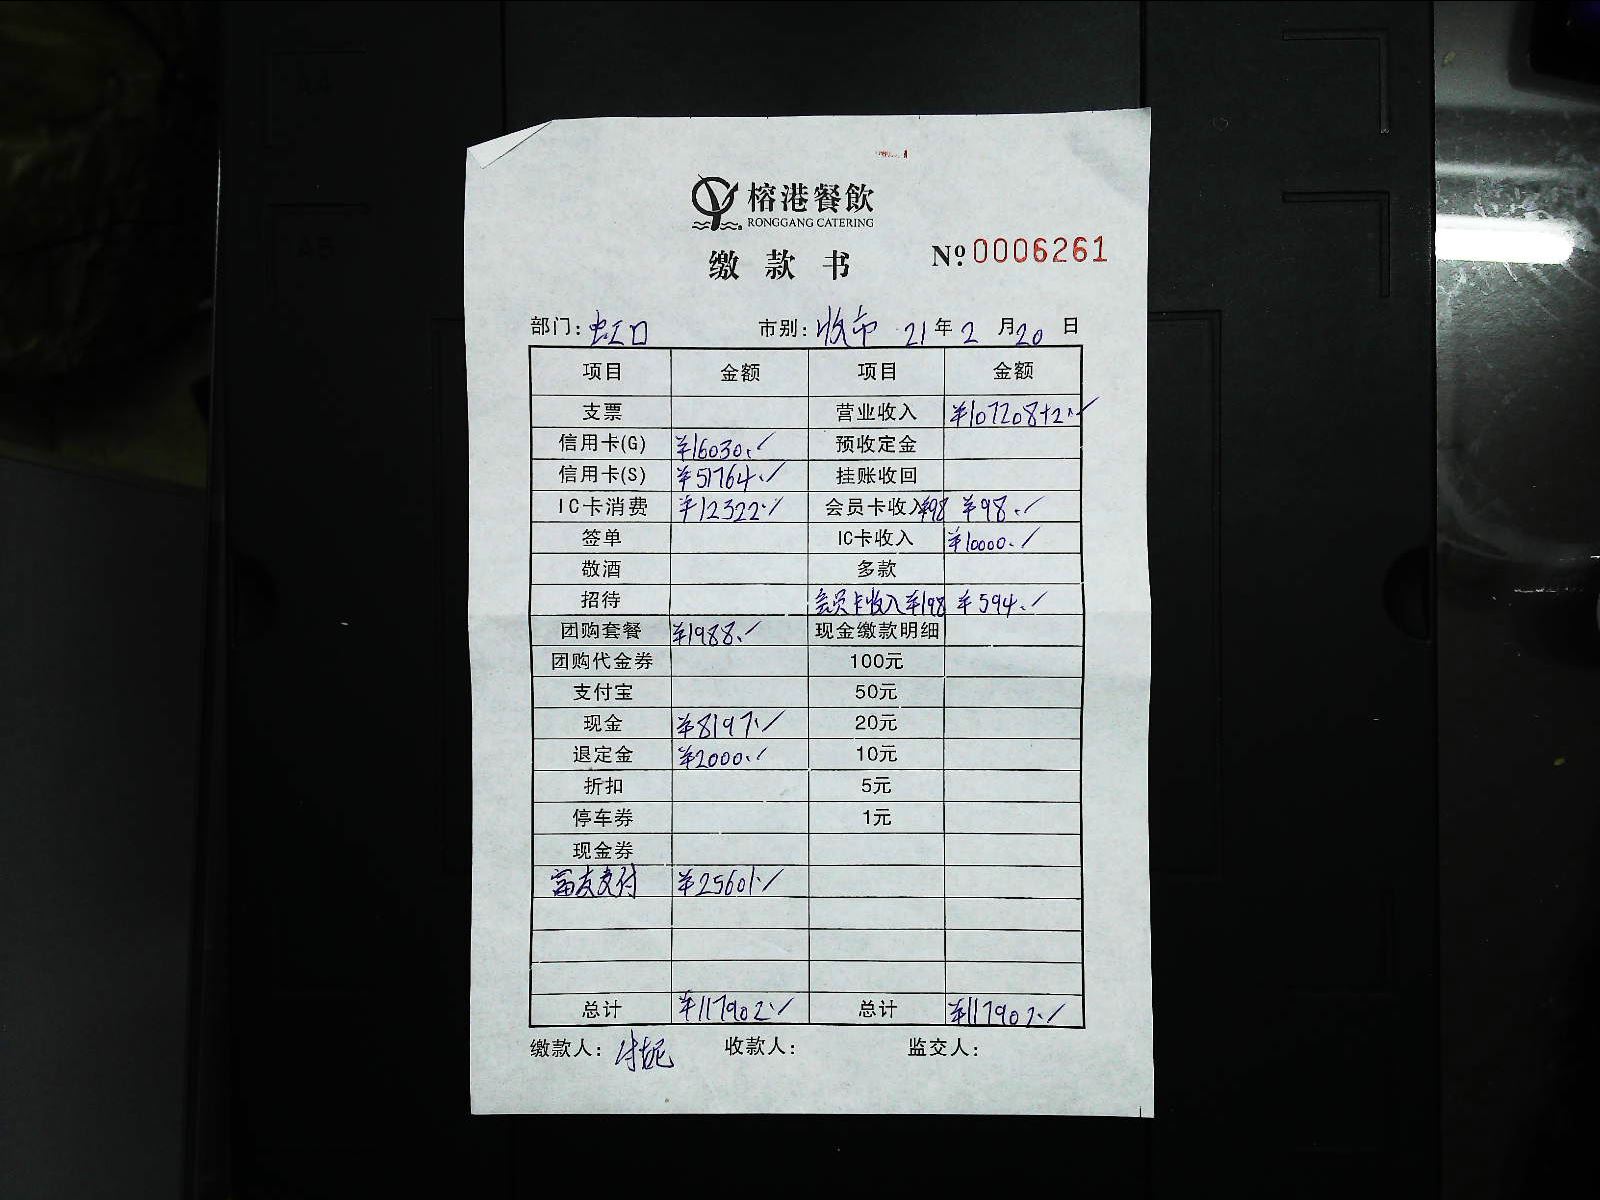 榕港餐飲
RONGGANG CATERING
缴款书 Nº 0006261
部门：虹口 市别：收市 21年2月20日
项目 金额 项目 金额
支票 营业收入 ¥107208+2.✓
信用卡(G) ¥16030.✓ 预收定金
信用卡(S) ¥51764.✓ 挂账收回
IC卡消费 ¥12322.✓ 会员卡收入¥98 ¥98.✓
签单 IC卡收入 ¥10000.✓
敬酒 多款
招待 会员卡收入¥198 ¥594.✓
团购套餐 ¥1988.✓ 现金缴款明细
团购代金券 100元
支付宝 50元
现金 ¥8197.✓ 20元
退定金 ¥2000.✓ 10元
折扣 5元
停车券 1元
现金券
富友支付 ¥25601.✓
总计 ¥117902.✓ 总计 ¥117902.✓
缴款人： 收款人： 监交人：
A4
A5